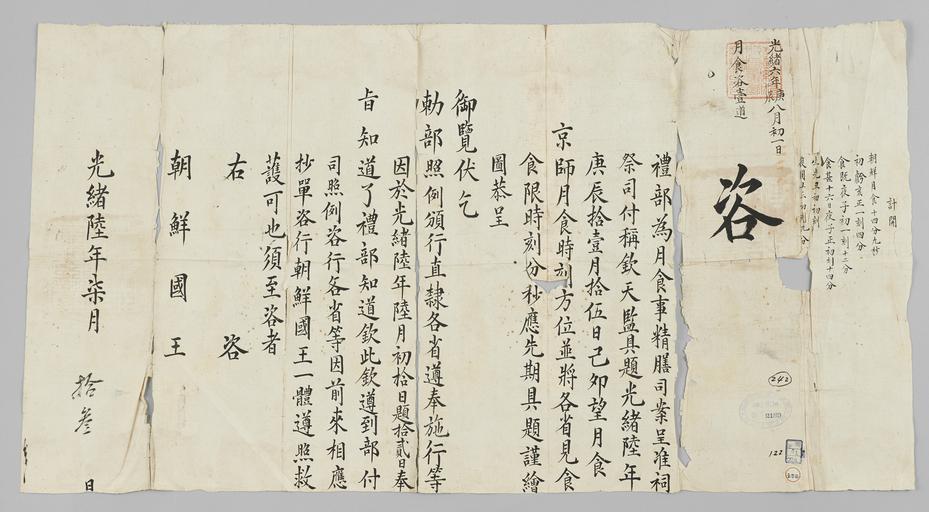 計開
朝鮮月食十四分九秒
初虧亥正一刻四分
食既夜子初一刻十二分
食甚十六日夜子正初刻十四分
生光丑初初刻
復圓丑正初刻九分
光緒六年庚辰八月初一日
月食咨壹道
咨
禮部為月食事精膳司案呈准祠
祭司付稱欽天監具題光緒陸年
庚辰拾壹月拾伍日己卯望月食
京師月食時刻方位並將各省見食
食限時刻分秒應先期具題謹繪
圖恭呈
御覽伏乞
勅部照例頒行直隸各省遵奉施行等
因於光緒陸年陸月初拾日題拾貳日奉
旨知道了禮部知道欽此欽遵到部付
司照例咨行各省等因前來相應
抄單咨行朝鮮國王一體遵照救
護可也須至咨者
右咨
朝鮮國王
光緒陸年柒月拾叁日
242
122